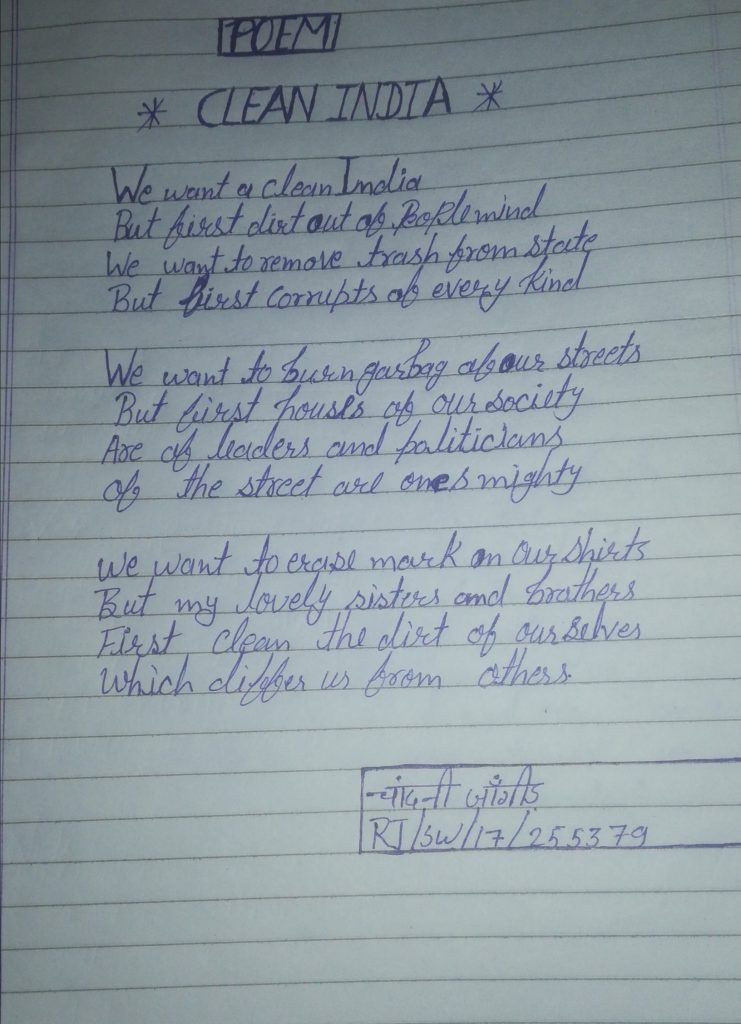 POEM
* CLEAN INDIA *
We want a clean India
But first dirt out of Poplemind
We want to remove trash from state
But first Corrupts of every kind
We want to burn garbag of our streets
But first houses of our society
Are of leaders and politicians
of the street are ones mighty
We want to erase mark on our shirts
But my lovely sisters and brothers
First clean the dirt of our selves
Which differ us from others.
चांदनी
RJ/SW/17/255379